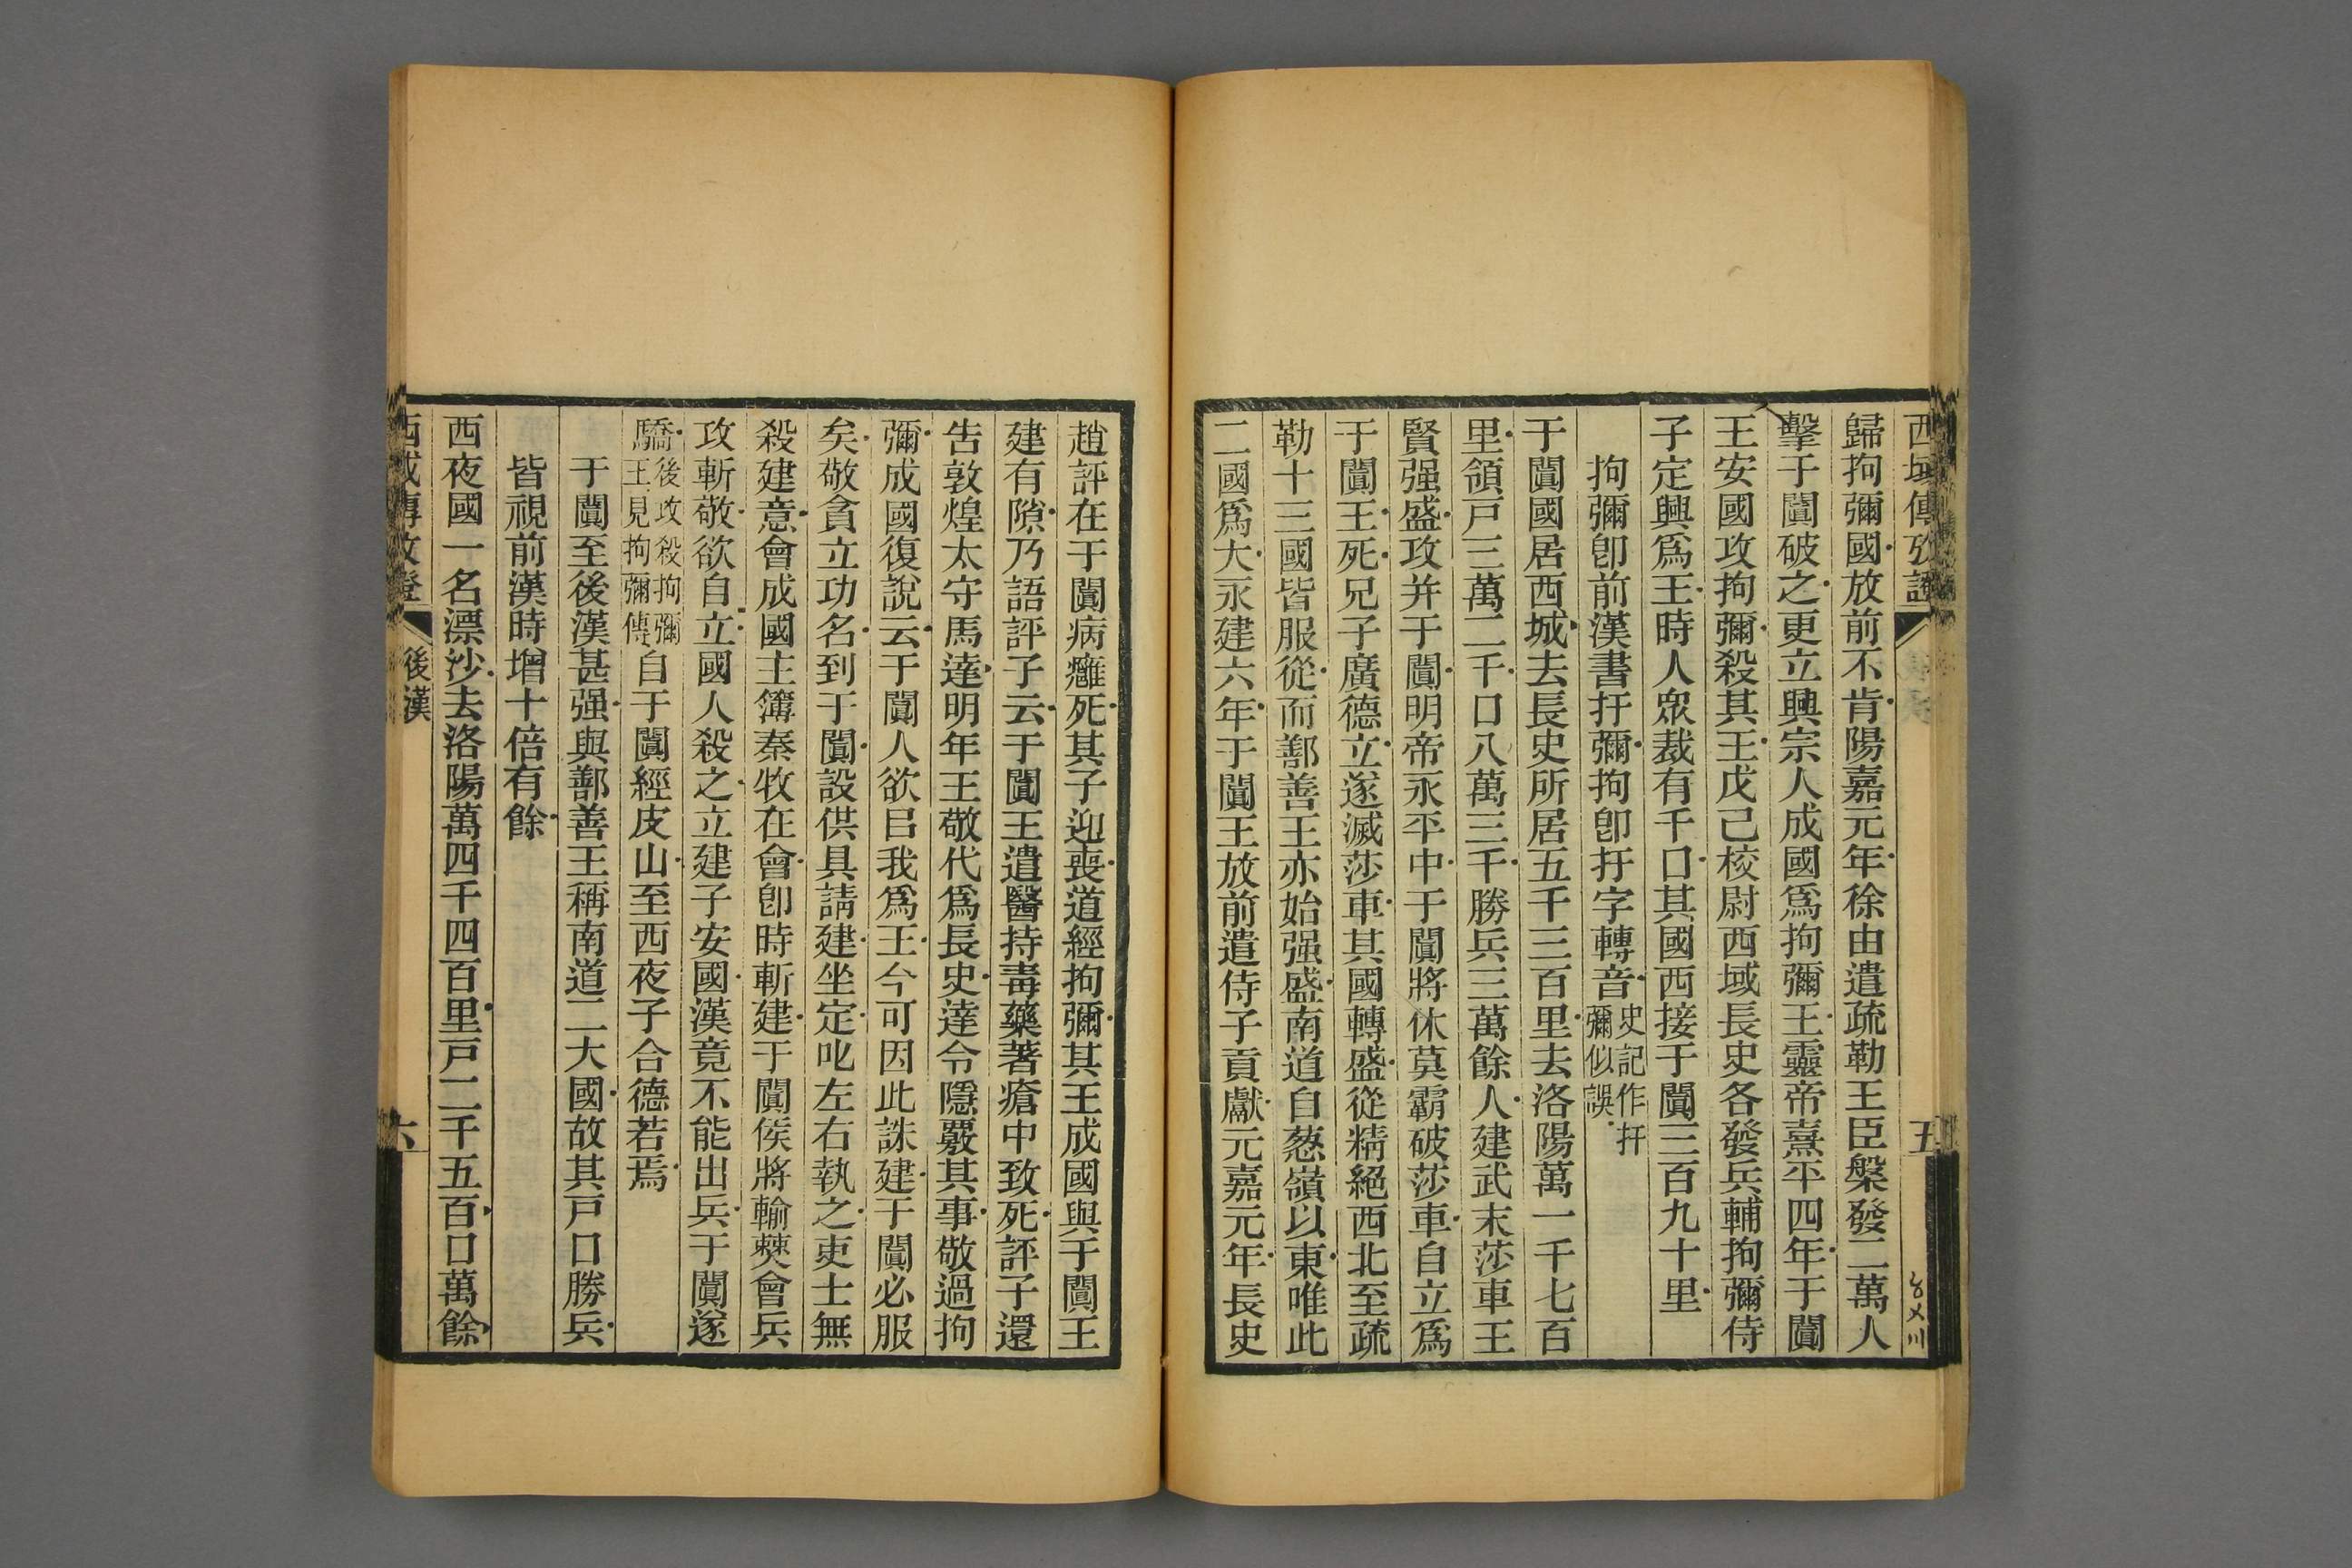 西域傳攷證
五
歸拘彌國放前不肯陽嘉元年徐由遣疏勒王臣槃發二萬人
擊于闐破之更立興宗人成國爲拘彌王靈帝熹平四年于闐
王安國攻拘彌殺其王戊己校尉西域長史各發兵輔拘彌侍
子定興爲王時人眾裁有千口其國西接于闐三百九十里
拘彌卽前漢書扜彌拘卽扜字轉音史記作扜彌似誤
于闐國居西城去長史所居五千三百里去洛陽萬一千七百
里領戶三萬二千口八萬三千勝兵三萬餘人建武末莎車王
賢强盛攻并于闐明帝永平中于闐將休莫霸破莎車自立爲
于闐王死兄子廣德立遂滅莎車其國轉盛從精絕西北至疏
勒十三國皆服從而鄯善王亦始强盛南道自葱嶺以東唯此
二國爲大永建六年于闐王放前遣侍子貢獻元嘉元年長史
趙評在于闐病癰死其子迎喪道經拘彌其王成國與于闐王
建有隙乃語評子云于闐王遣醫持毒藥著瘡中致死評子還
告敦煌太守馬達明年王敬代爲長史達令隱覈其事敬過拘
彌成國復說云于闐人欲㠯我爲王今可因此誅建于闐必服
矣敬貪立功名到于闐設供具請建坐定叱左右執之吏士無
殺建意會成國主簿秦牧在會卽時斬建于闐侯將輸僰會兵
攻斬敬欲自立國人殺之立建子安國漢竟不能出兵于闐遂
驕後攻殺拘彌王見拘彌傳自于闐經皮山至西夜子合德若焉
于闐至後漢甚强與鄯善王稱南道二大國故其戶口勝兵
皆視前漢時增十倍有餘
西夜國一名漂沙去洛陽萬四千四百里戶二千五百口萬餘
西域傳攷證
後漢
六